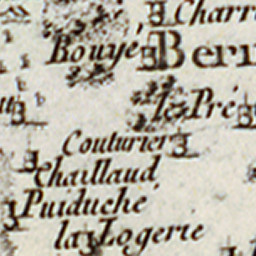 Charr
Bouyé
Bern
le Pré
Couturier
Chaillaud
Puiduché
la Logerie